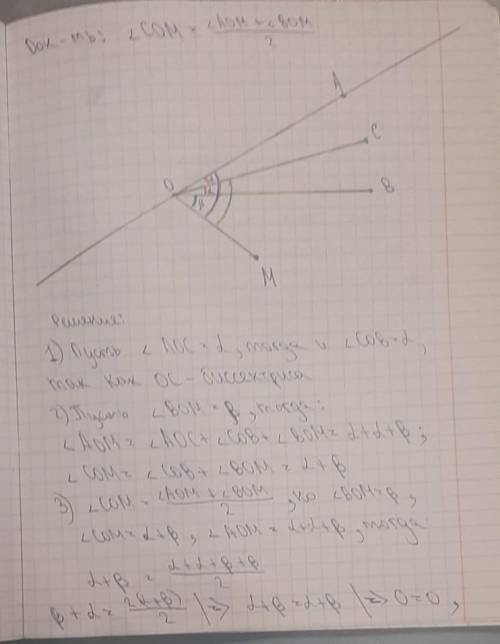 Док-ть: ∠COM = (∠AOM + ∠BOM)/2
A
C
O
α
α
B
β
M
Решение:
1) Пусть ∠AOC = α, тогда и ∠COB = α,
так как OC - биссектриса
2) Пусть ∠BOM = β, тогда:
∠AOM = ∠AOC + ∠COB + ∠BOM = α+α+β;
∠COM = ∠COB + ∠BOM = α+β
3) ∠COM = (∠AOM + ∠BOM)/2, но ∠BOM = β,
∠COM = α+β, ∠AOM = α+α+β, тогда
α+β = (α+α+β+β)/2
β+α = 2(α+β)/2 |⇒ α+β = α+β |⇒ 0=0,